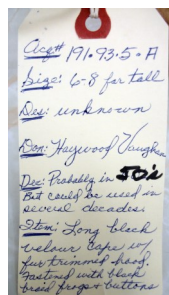 Acq# 191.93.5.A
Size: 6-8 for tall
Des: unknown
Don: Heywood Vaughan
Dec: Probably in 50's
But could be used in
several decades.
Item: Long black
velour cape w/
fur trimmed hood.
Fastened with black
braid frogs + buttons